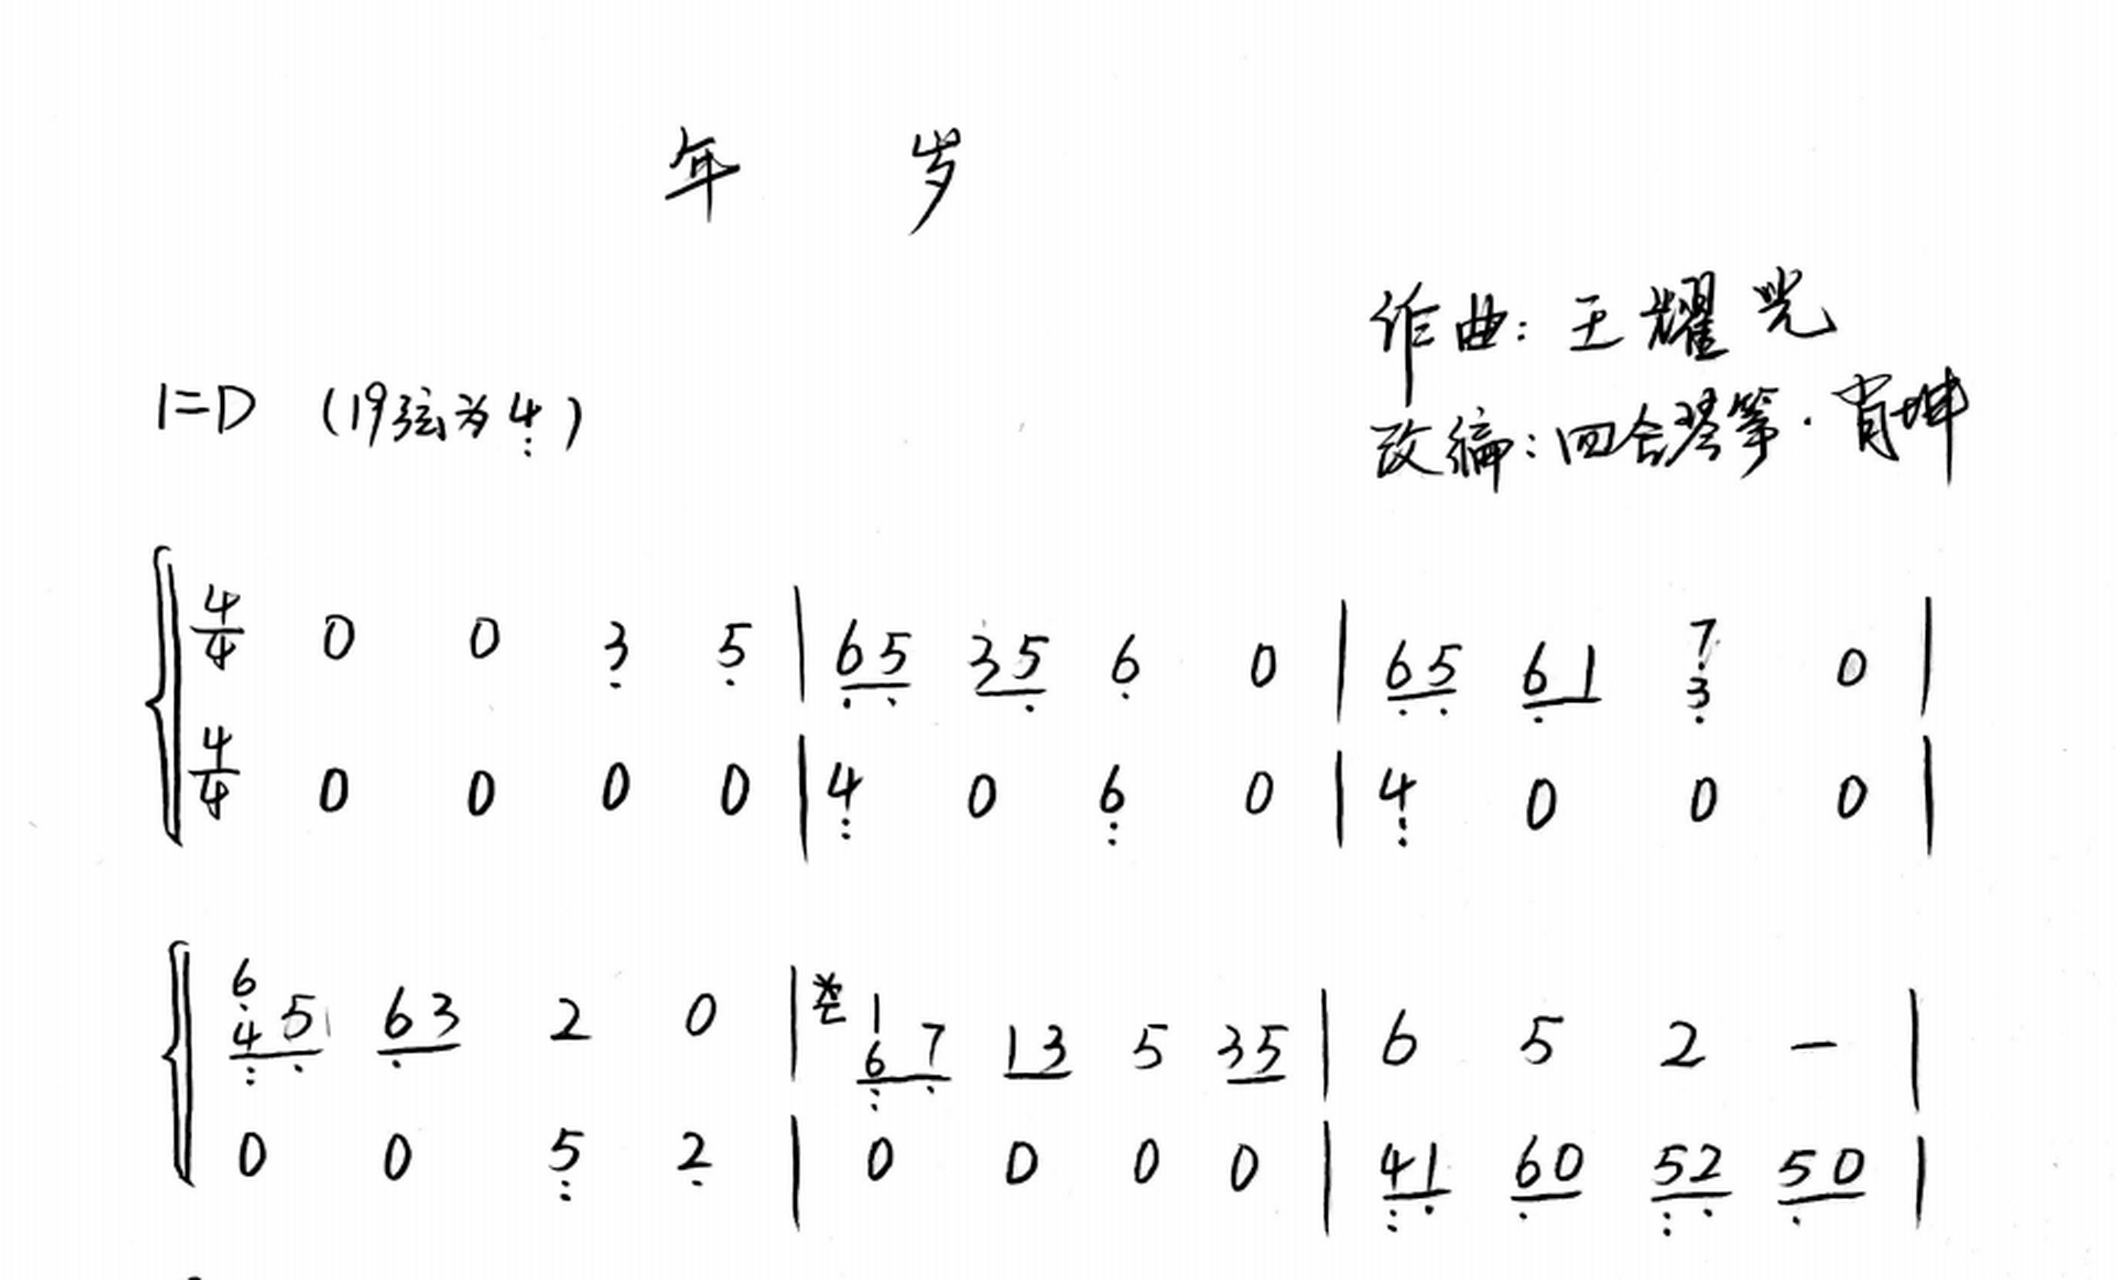 年 岁
作曲: 王耀光
1=D (19弦为4)
改编: 四合琴筝·肖坤
4/4 0 0 3 5 | 65 35 6 0 | 65 61 7 3 0 |
4/4 0 0 0 0 | 4 0 6 0 | 4 0 0 0 |
6 4 5 63 2 0 | 1 6 7 13 5 35 | 6 5 2 — |
0 0 5 2 | 0 0 0 0 | 41 60 52 50 |